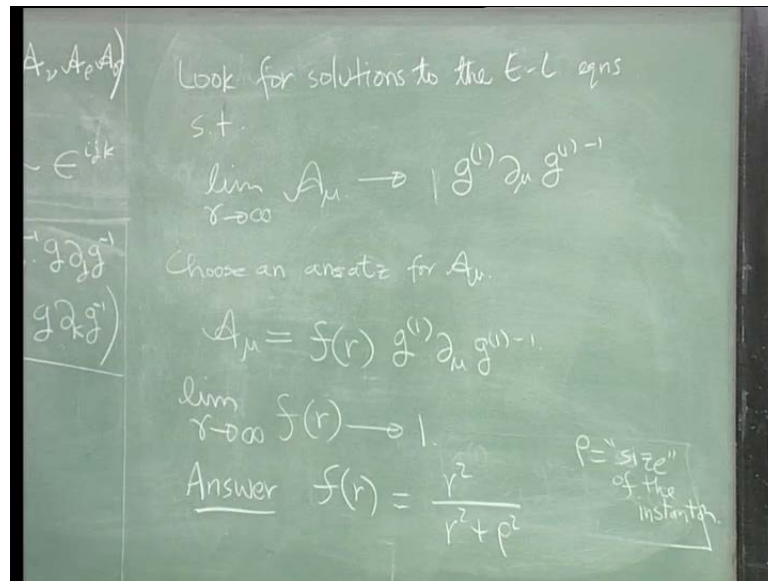 A_ν A_ρ A_σ)
~ ε^{ijk}
^{-1} g∂_j g^{-1}
g∂_k g^{-1})
Look for solutions to the E-L eqns
s.t.
lim_{r→∞} A_μ → 1 g^{(1)} ∂_μ g^{(1)-1}
Choose an ansatz for A_μ.
A_μ = f(r) g^{(1)} ∂_μ g^{(1)-1}.
lim_{r→∞} f(r) → 1.
Answer f(r) = r²/(r²+ρ²)
ρ = "size"
of the
instanton.